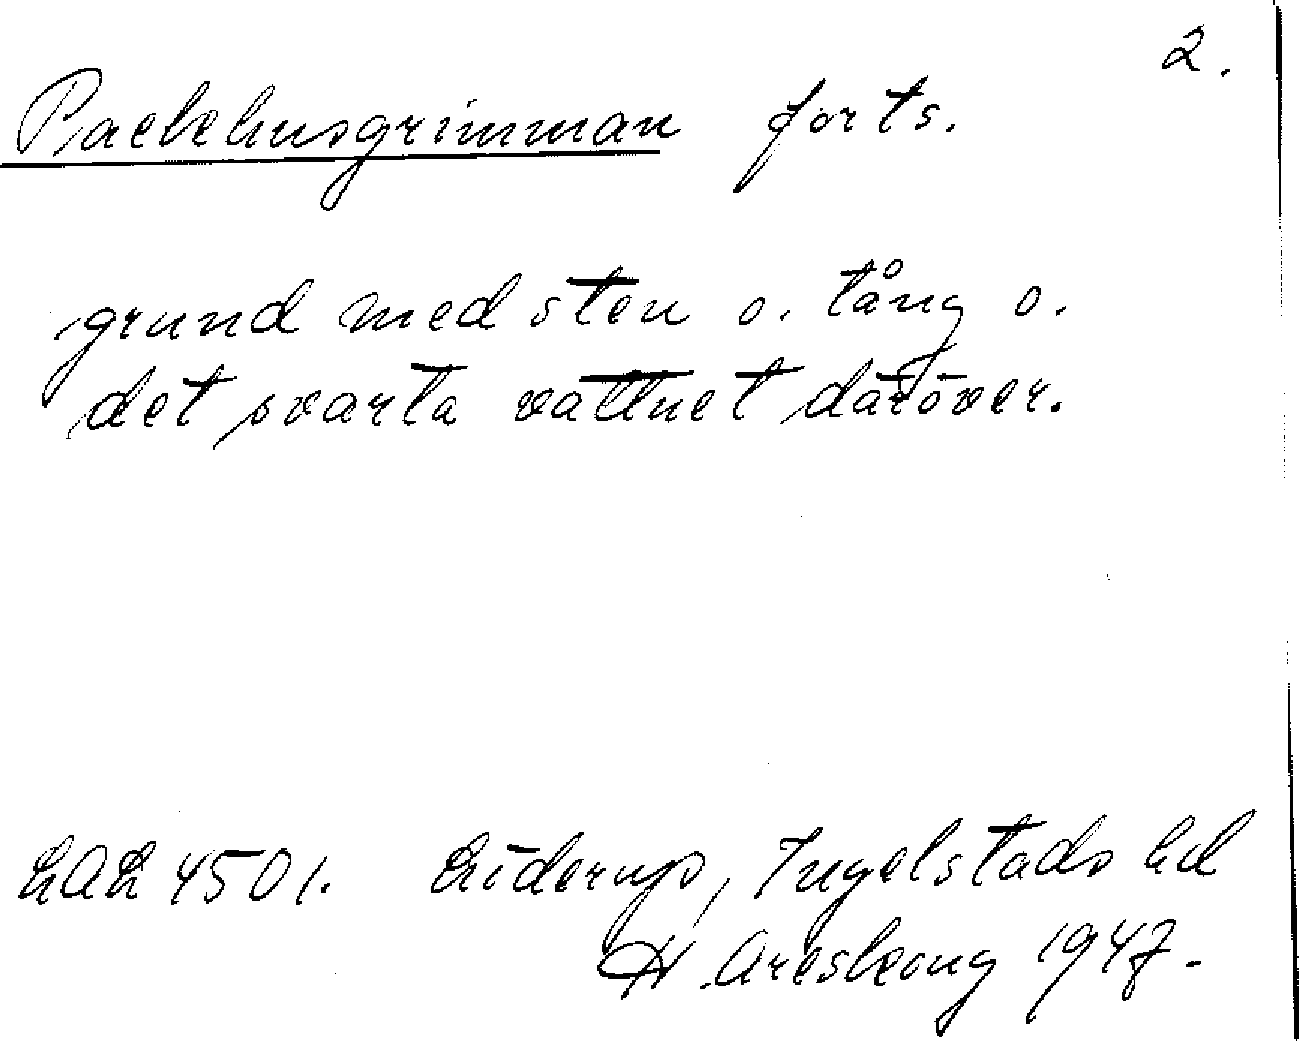 2.
Packhusgrimman forts.
grund med sten o. tång o.
det svarta vattnet däröver.
LAL 4501. Löderup, Ingelstads hd
H. Areskoug 1947.